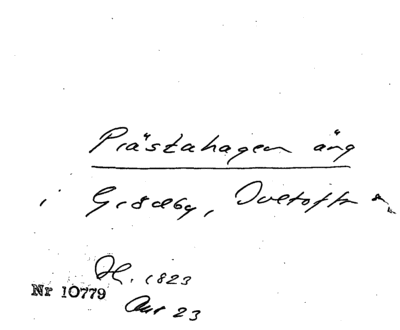 Prästahagen äng
i Grödby, Ovetofta
H. 1823
Nr 10779
Aur 23